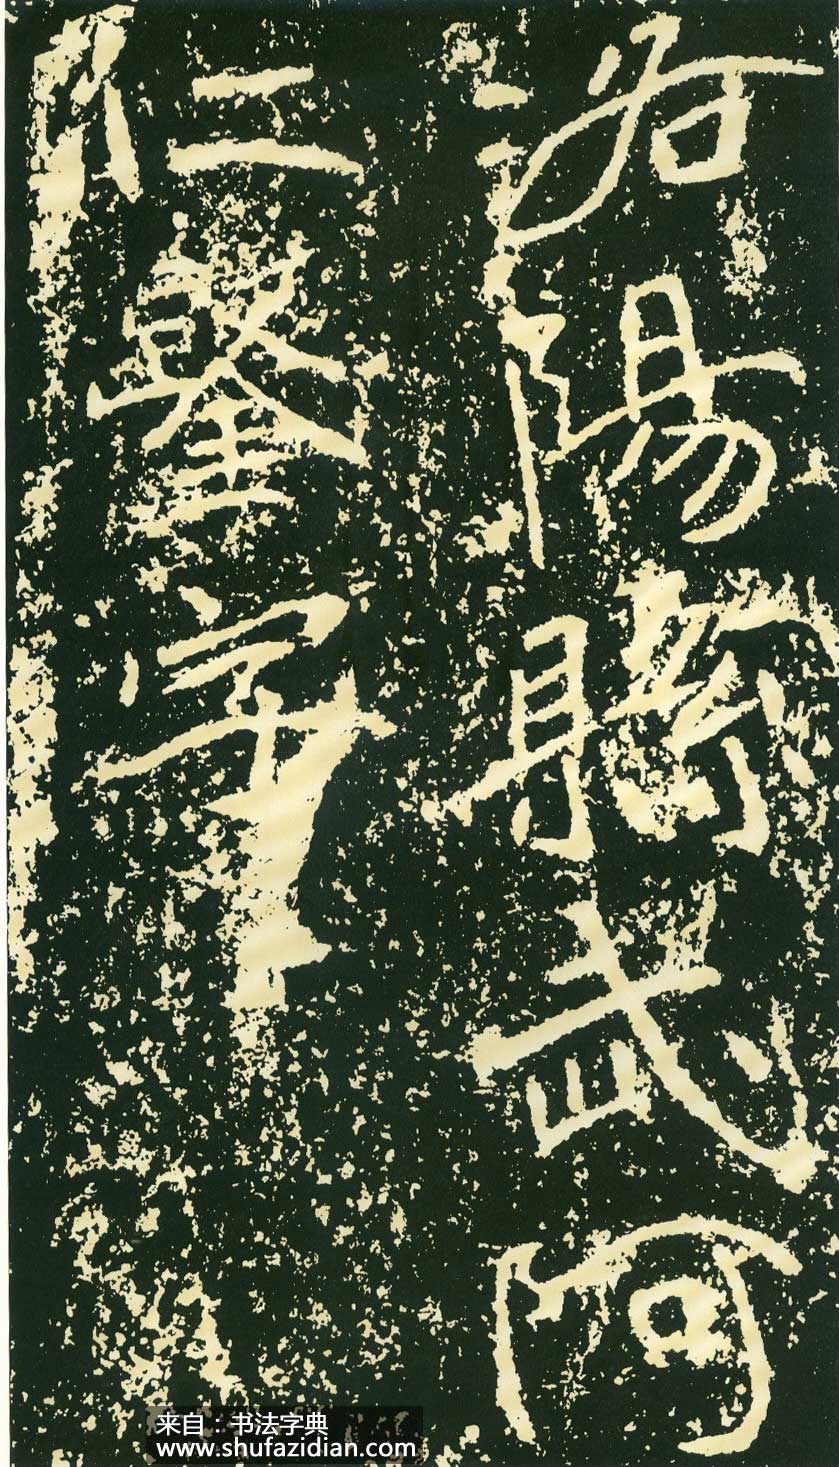 洛陽縣武阿
仁鑿字
来自：书法字典
www.shufazidian.com